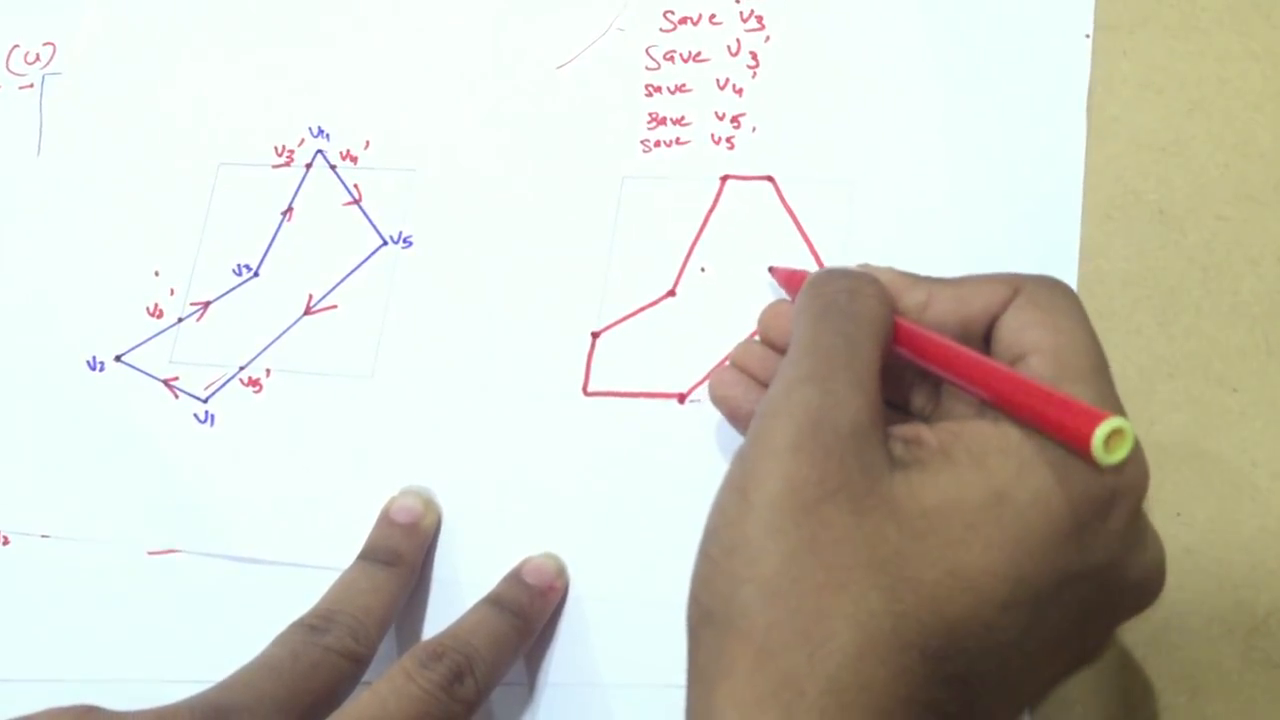 (u)
save v3
save v3'
save v4'
save v5
save v5'
v4
v3'
v4'
v5
v3
v2'
v2
v5'
v1